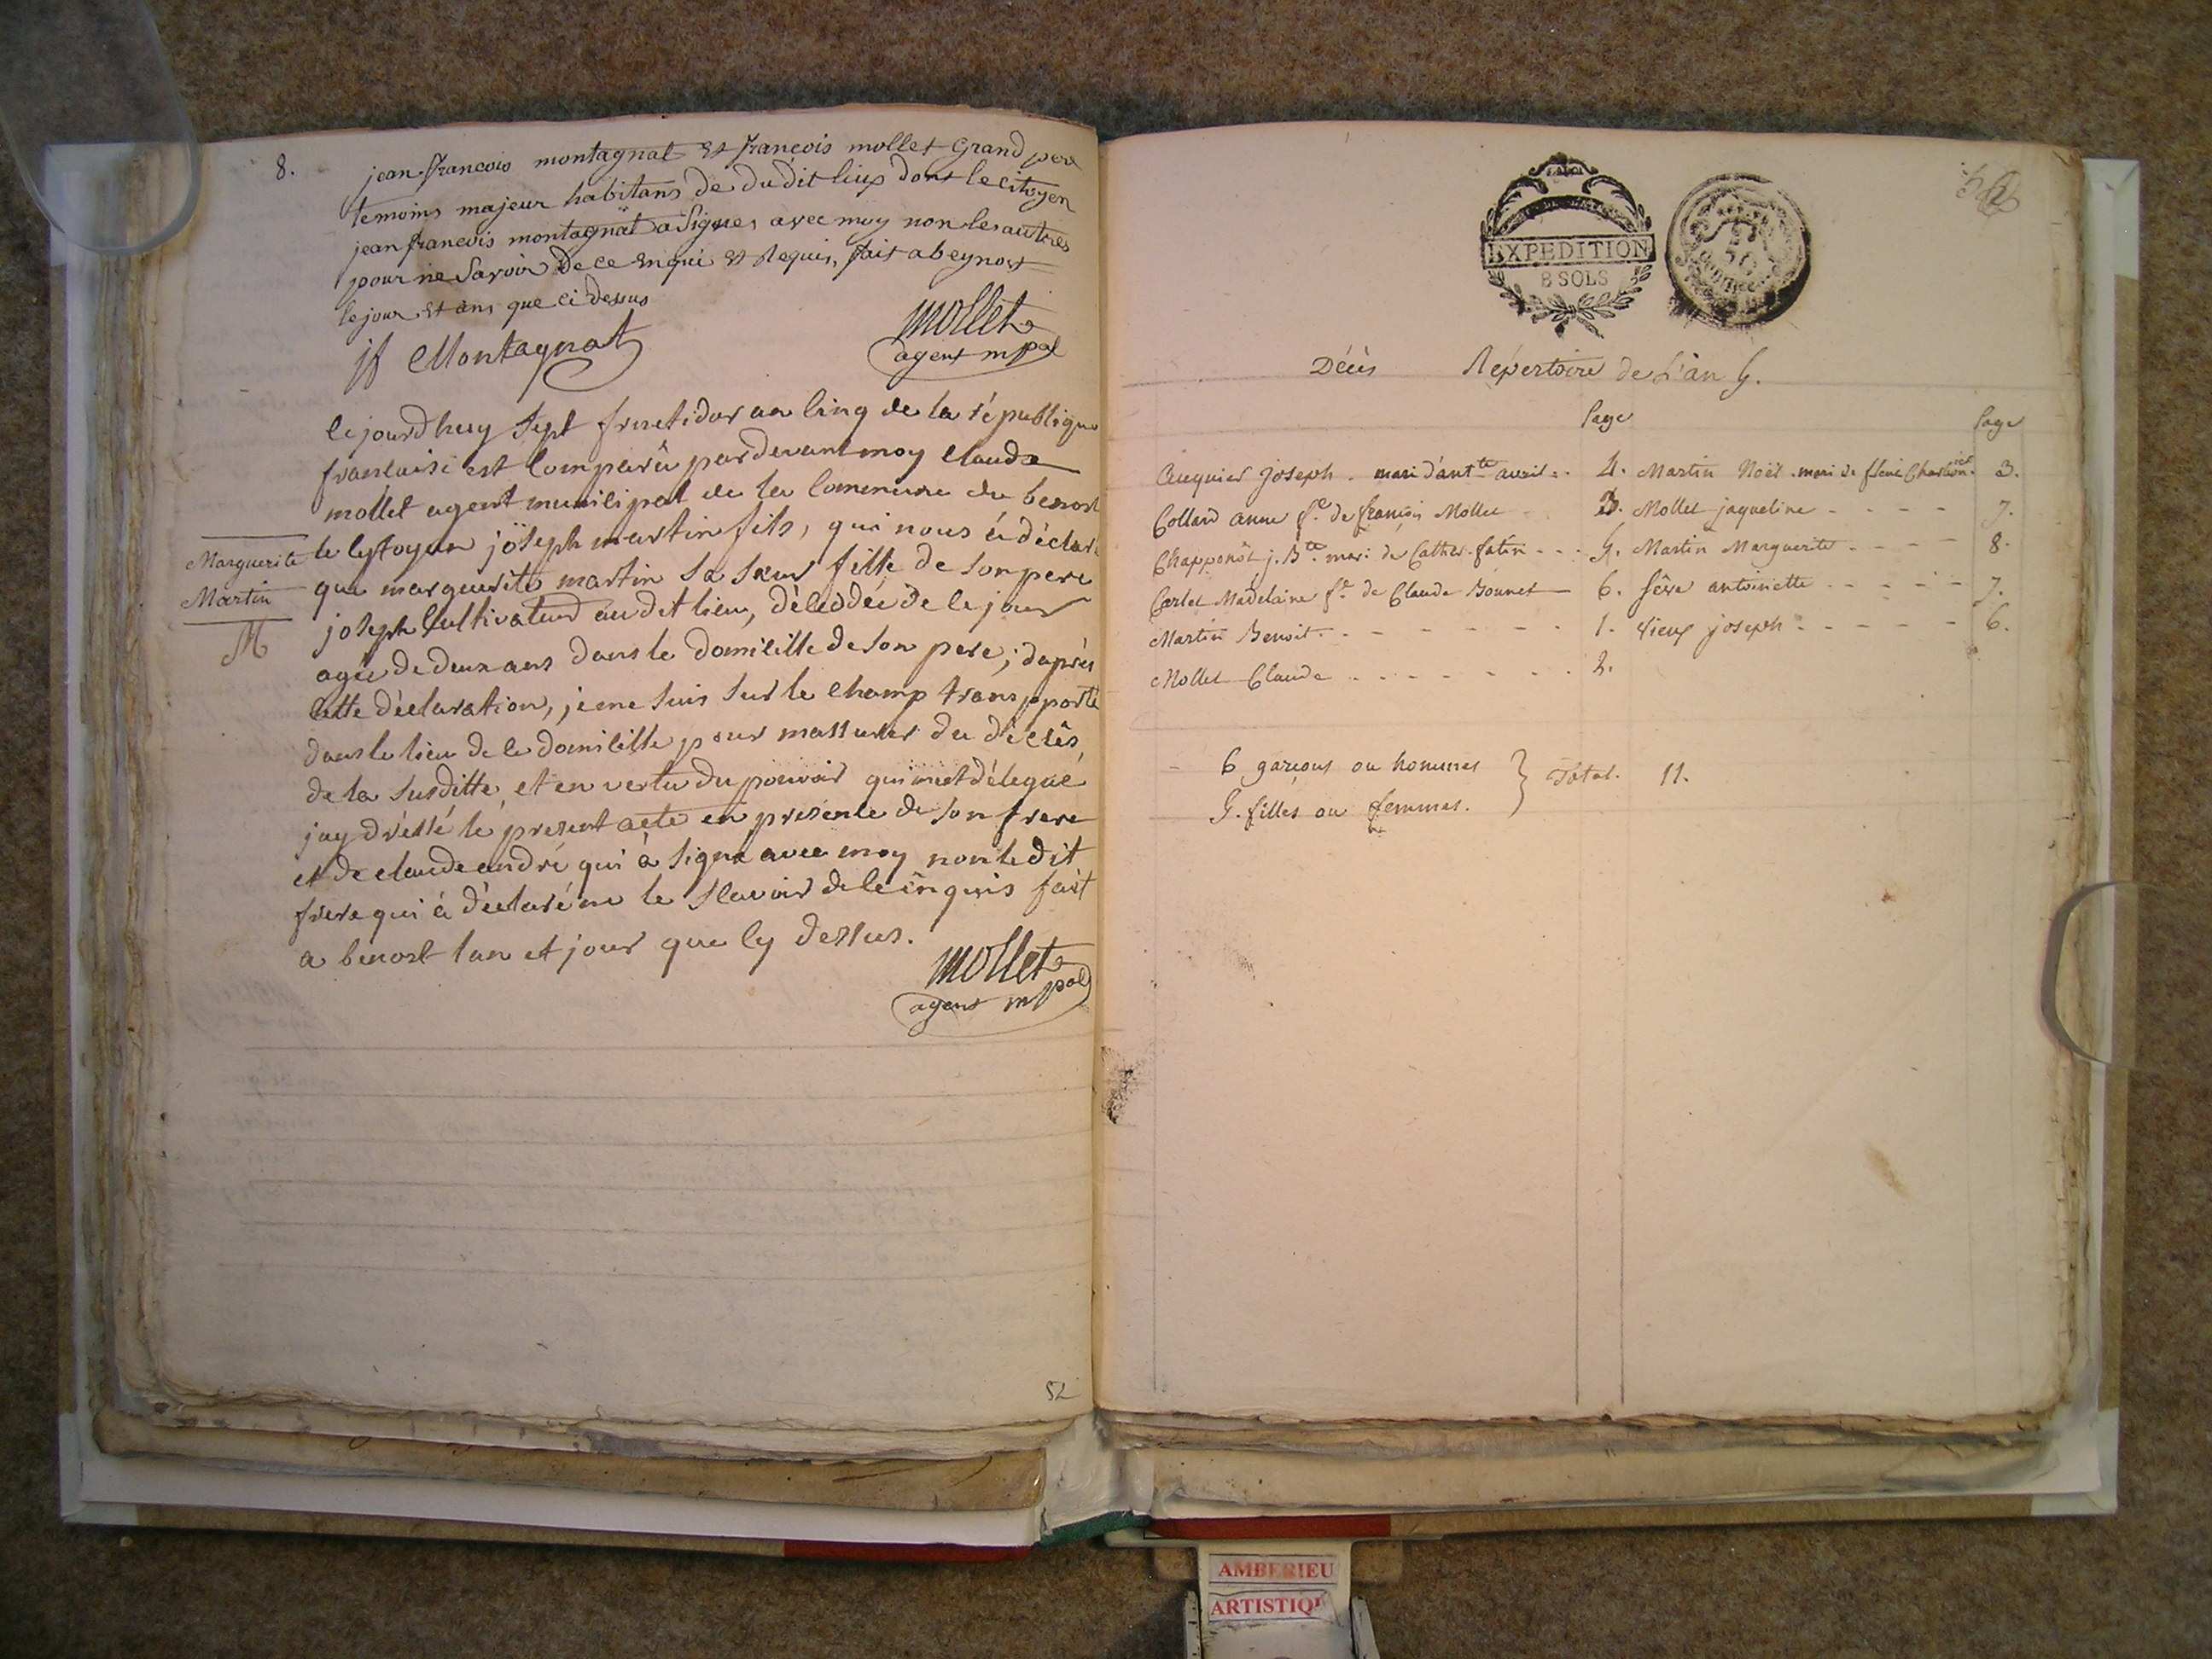 8.
jean françois montagnat et françois mollet Grand pere
temoins majeur habitans de dudit lieu dont le citoyen
jean francois montagnat a Signer avec moy non les autres
pour ne Savoir De ce Enqui et Requis, fait a beynost
le jour et ans que ci dessus
jf Montagnat
mollet
agent mpal
cejourdhuy Sept fructidor an cinq de la république
francaise est comparû pardevant moy claude
mollet agent municipal de la commune du benost
le cytoyen jöseph martin fils, qui nous á déclaré
que marguerite martin sa sœur fille de son pere
joseph cultivateur audit lieu, décedée de ce jour
agée de deux ans dans le domicille de son pere; d'aprés
cette déclaration, je me suis sur le champ transpporté
dans le lieu de ce domicille pour massurer du décès
de la susditte, et en vertu du pouvoir qui mest délegué
jay dréssé le present acte en presence de son frere
et de claude andré qui à signé avec moy non le dit
frere qui à déclaré ne le scavoir de ce enquis fait
a benost lan et jour que cy dessus.
mollet
agent mpal
Marguerite
Martin
M
52
EXPEDITION
8 SOLS
Décès Répertoire de L'an 5.
Page Page
Cuquier joseph . mari d'antte avril . . 4. Martin Noël . mari de 3.
Collard anne fe de françois Mollet 3. Mollet jaqueline - - - - 7.
Chapponôt j. Bte mari de Cather. fatin - - . 5. Martin Marguerite - - - - 8.
Carlet Madelaine fe de Claude Bonnet 6. Sêve antoinette - - - - 7.
Martin Benoit - - - - - - 1. Vieux joseph - - - - - 6.
Mollet Claude . - - - - - . 2.
6 garçons ou hommes } Total. 11.
5. filles ou femmes.
AMBERIEU
ARTISTIQU